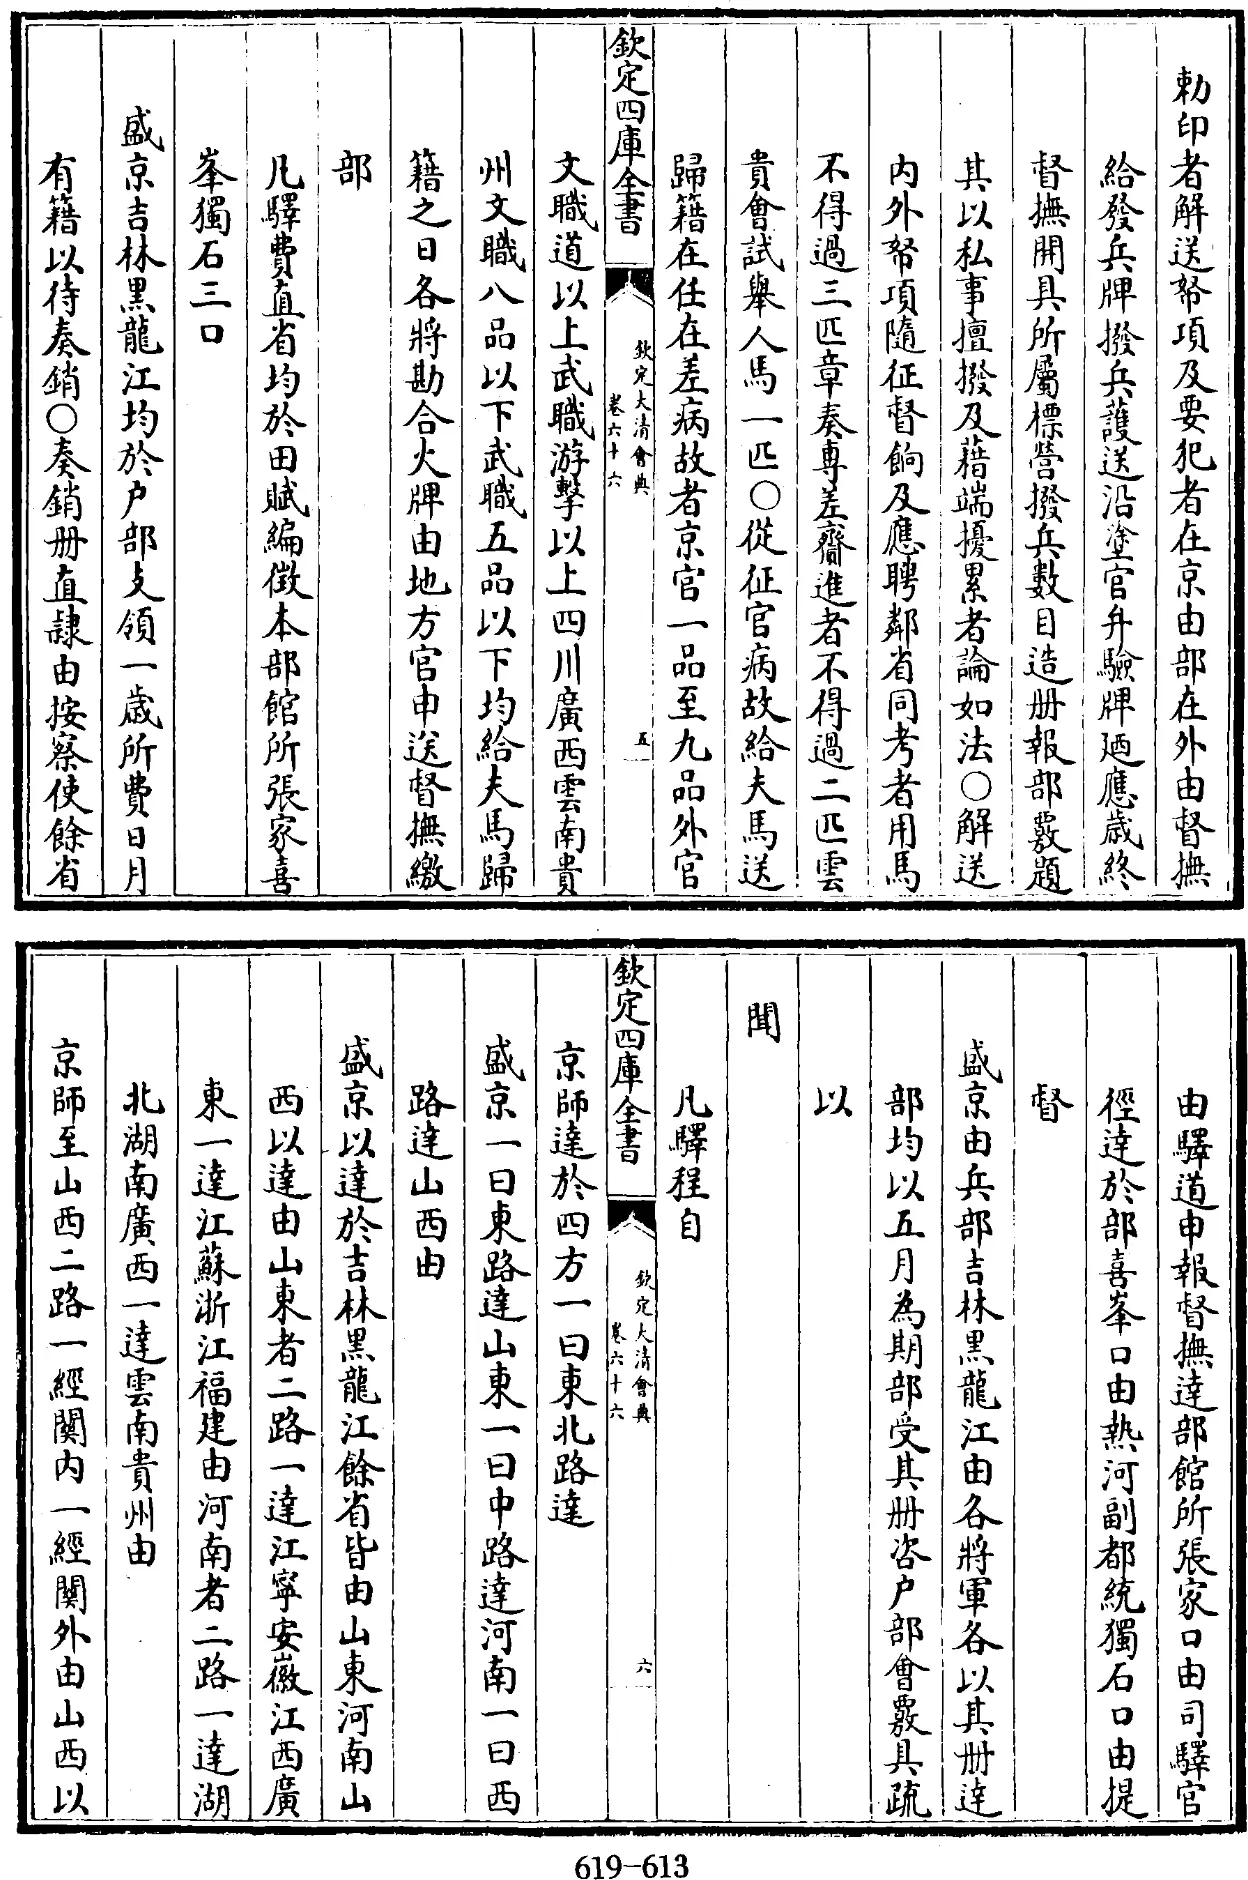 勅印者解送帑項及要犯者在京由部在外由督撫
給發兵牌撥兵護送沿塗官弁驗牌廼應歲終
督撫開具所屬標營撥兵數目造册報部覈題
其以私事擅撥及藉端擾累者論如法〇解送
內外帑項隨征督餉及應聘鄰省同考者用馬
不得過三匹章奏專差齎進者不得過二匹雲
貴會試舉人馬一匹〇從征官病故給夫馬送
歸籍在任在差病故者京官一品至九品外官
欽定四庫全書
欽定大清會典
卷六十六
五
文職道以上武職游擊以上四川廣西雲南貴
州文職八品以下武職五品以下均給夫馬歸
籍之日各將勘合火牌由地方官申送督撫繳
部
凡驛費直省均於田賦編徵本部館所張家喜
峯獨石三口
盛京吉林黑龍江均於户部支領一歲所費日月
有籍以待奏銷〇奏銷册直隷由按察使餘省
由驛道申報督撫達部館所張家口由司驛官
徑達於部喜峯口由熱河副都統獨石口由提
督
盛京由兵部吉林黑龍江由各將軍各以其册達
部均以五月為期部受其册咨户部會覈具疏
以
聞
凡驛程自
欽定四庫全書
欽定大清會典
卷六十六
六
京師達於四方一曰東北路達
盛京一曰東路達山東一曰中路達河南一曰西
路達山西由
盛京以達於吉林黑龍江餘省皆由山東河南山
西以達由山東者二路一達江寧安徽江西廣
東一達江蘇浙江福建由河南者二路一達湖
北湖南廣西一達雲南貴州由
京師至山西二路一經關內一經關外由山西以
619-613